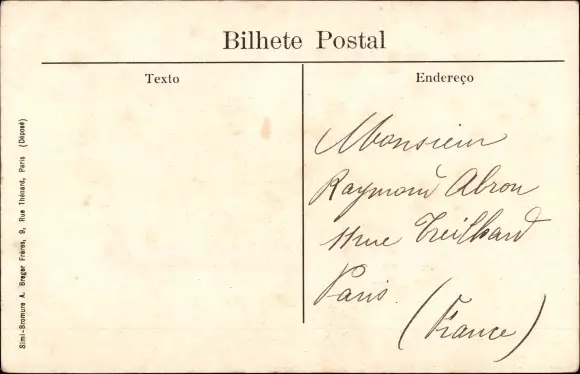 Bilhete Postal
Texto
Endereço
Monsieur
Raymond Abron
11 rue Treilhard
Paris.
(France)
Simi-Bromure A. Breger Frères, 9, Rue Thénard, Paris (Déposé)